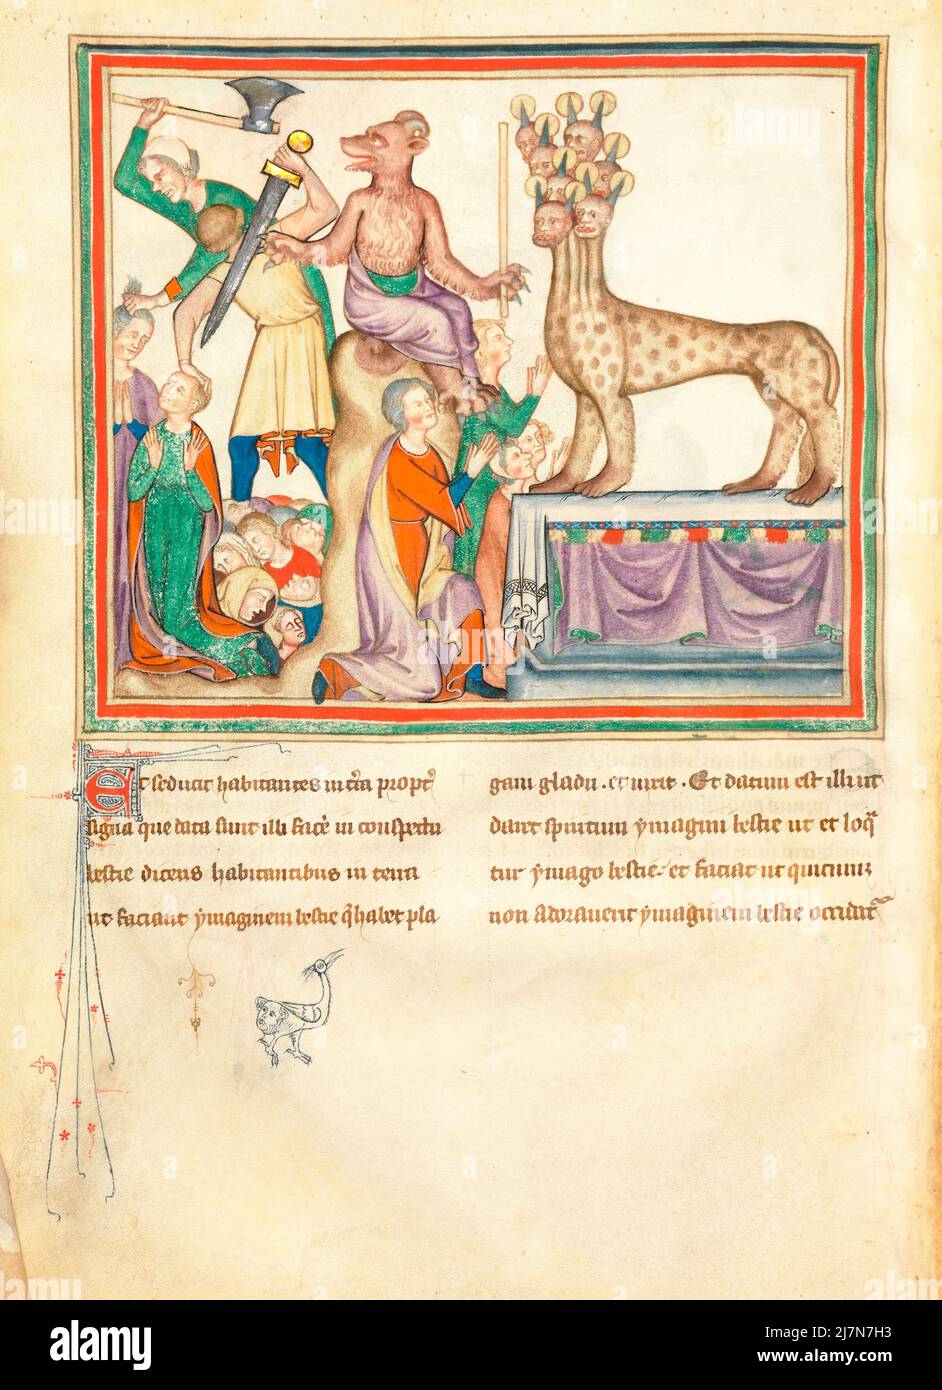 Et seducit habitantes in t̄ra propt̄
signa que data sunt illi face᷑ in conspectu
bestie dicens habitantibus in terra
ut faciant ymaginem bestie q̄ habet pla
gam gladii . et uixit . Et datum est illi ut
daret spiritum ymagini bestie ut et loq̄
tur ymago bestie . et faciat ut quicumq;
non adorauerit ymaginem bestie occidat᷑
alamy
Image ID: 2J7N7H3
www.alamy.com